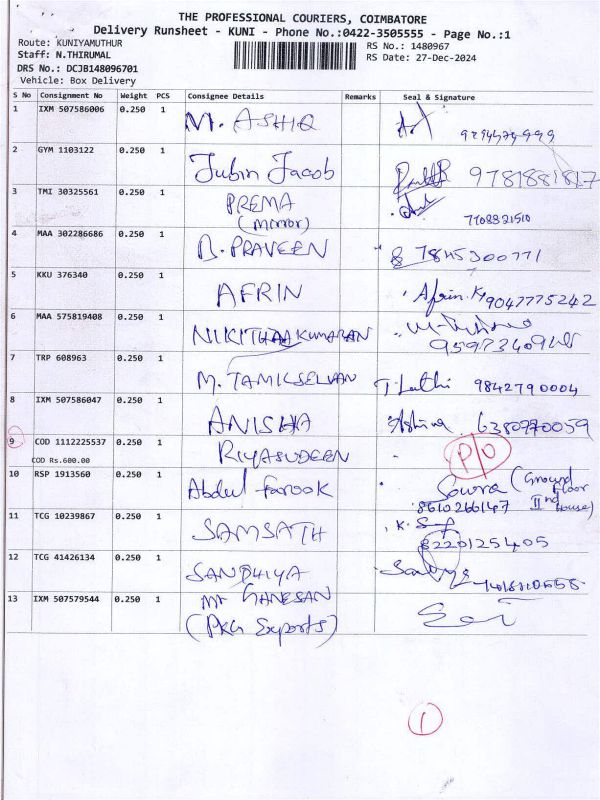 THE PROFESSIONAL COURIERS, COIMBATORE
Delivery Runsheet - KUNI - Phone No.:0422-3505555 - Page No.:1
Route: KUNIYAMUTHUR RS No.: 1480967
Staff: N.THIRUMAL RS Date: 27-Dec-2024
DRS No.: DCJB148096701
Vehicle: Box Delivery
S No Consignment No Weight PCS Consignee Details Remarks Seal & Signature
1 IXM 507586006 0.250 1 M. ASHIQ
2 GYM 1103122 0.250 1 Jubin Jacob 9781881817
3 TMI 30325561 0.250 1 PREMA
(mirror) 7708321510
4 MAA 302286686 0.250 1 B. PRAVEEN 7845300771
5 KKU 376340 0.250 1 AFRIN Afrin.K 9047775242
6 MAA 575819408 0.250 1 NIKITHAA KUMARAN
7 TRP 608963 0.250 1 M. TAMILSELVAN T. Lathi 9842790004
8 IXM 507586047 0.250 1 ANISHA 6380770059
9 COD 1112225537 0.250 1 RIYASUDEEN P/O
COD Rs.600.00
10 RSP 1913560 0.250 1 Abdul Farook (Ground Floor
8610266147 IInd House)
11 TCG 10239867 0.250 1 SAMSATH K.
8220125405
12 TCG 41426134 0.250 1 SANDHIYA
13 IXM 507579544 0.250 1 Mr GANESAN
(PKG Exports)
1